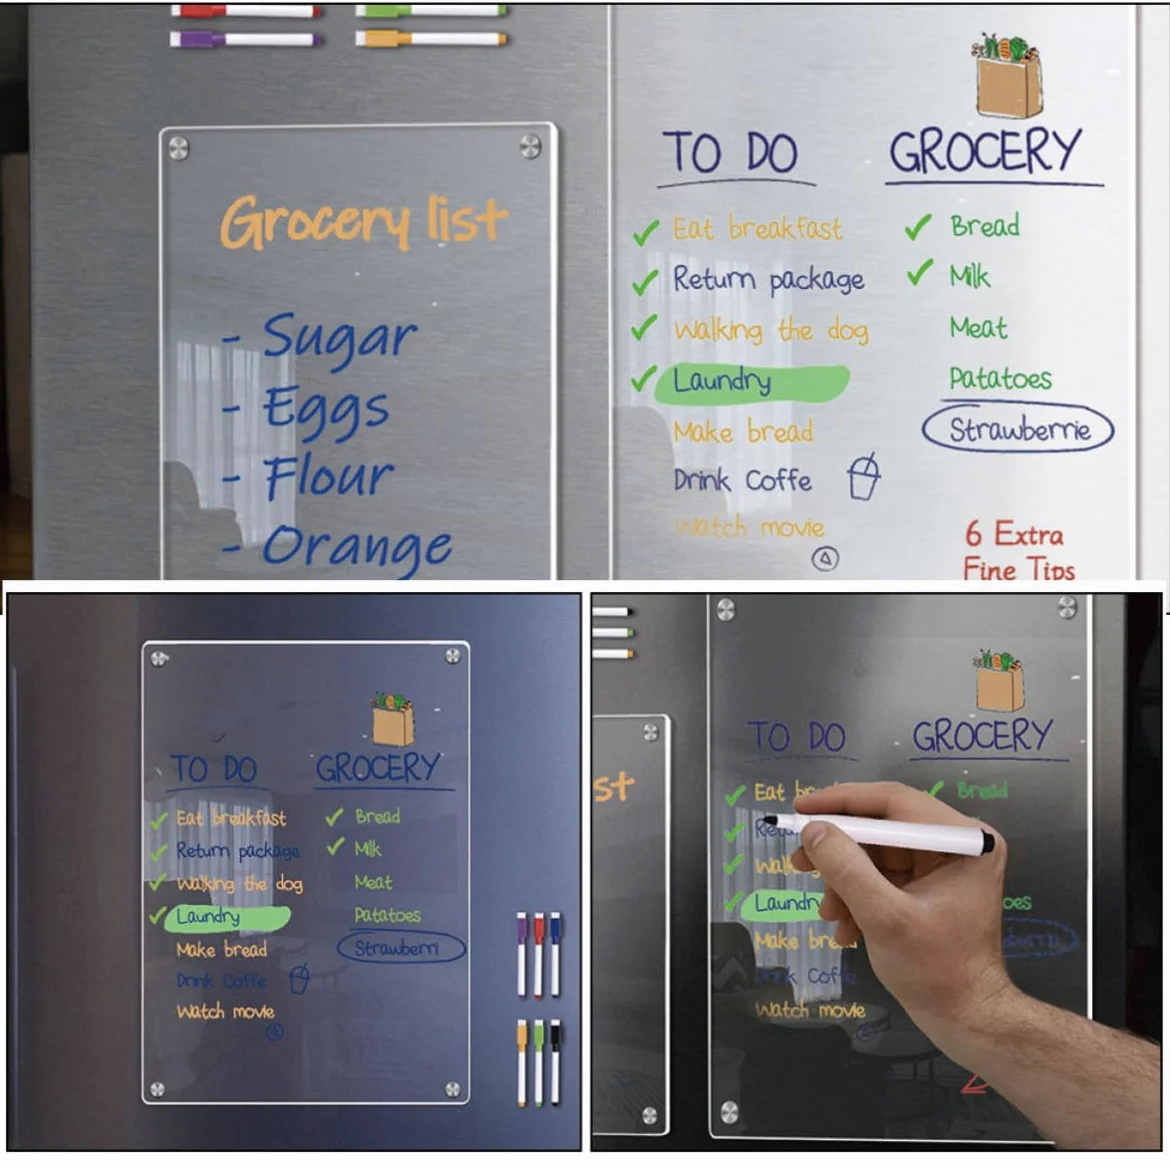 Grocery list
- Sugar
- Eggs
- Flour
- Orange
TO DO
Eat breakfast
Return package
Walking the dog
Laundry
Make bread
Drink Coffe
Watch movie
GROCERY
Bread
Milk
Meat
Patatoes
Strawberrie
6 Extra
Fine Tips
TO DO
Eat breakfast
Return package
Walking the dog
Laundry
Make bread
Drink Coffe
Watch movie
GROCERY
Bread
Milk
Meat
Patatoes
Strawberri
st
TO DO
Eat
Laundry
Make bread
Coffe
Watch movie
GROCERY
Bread
oes